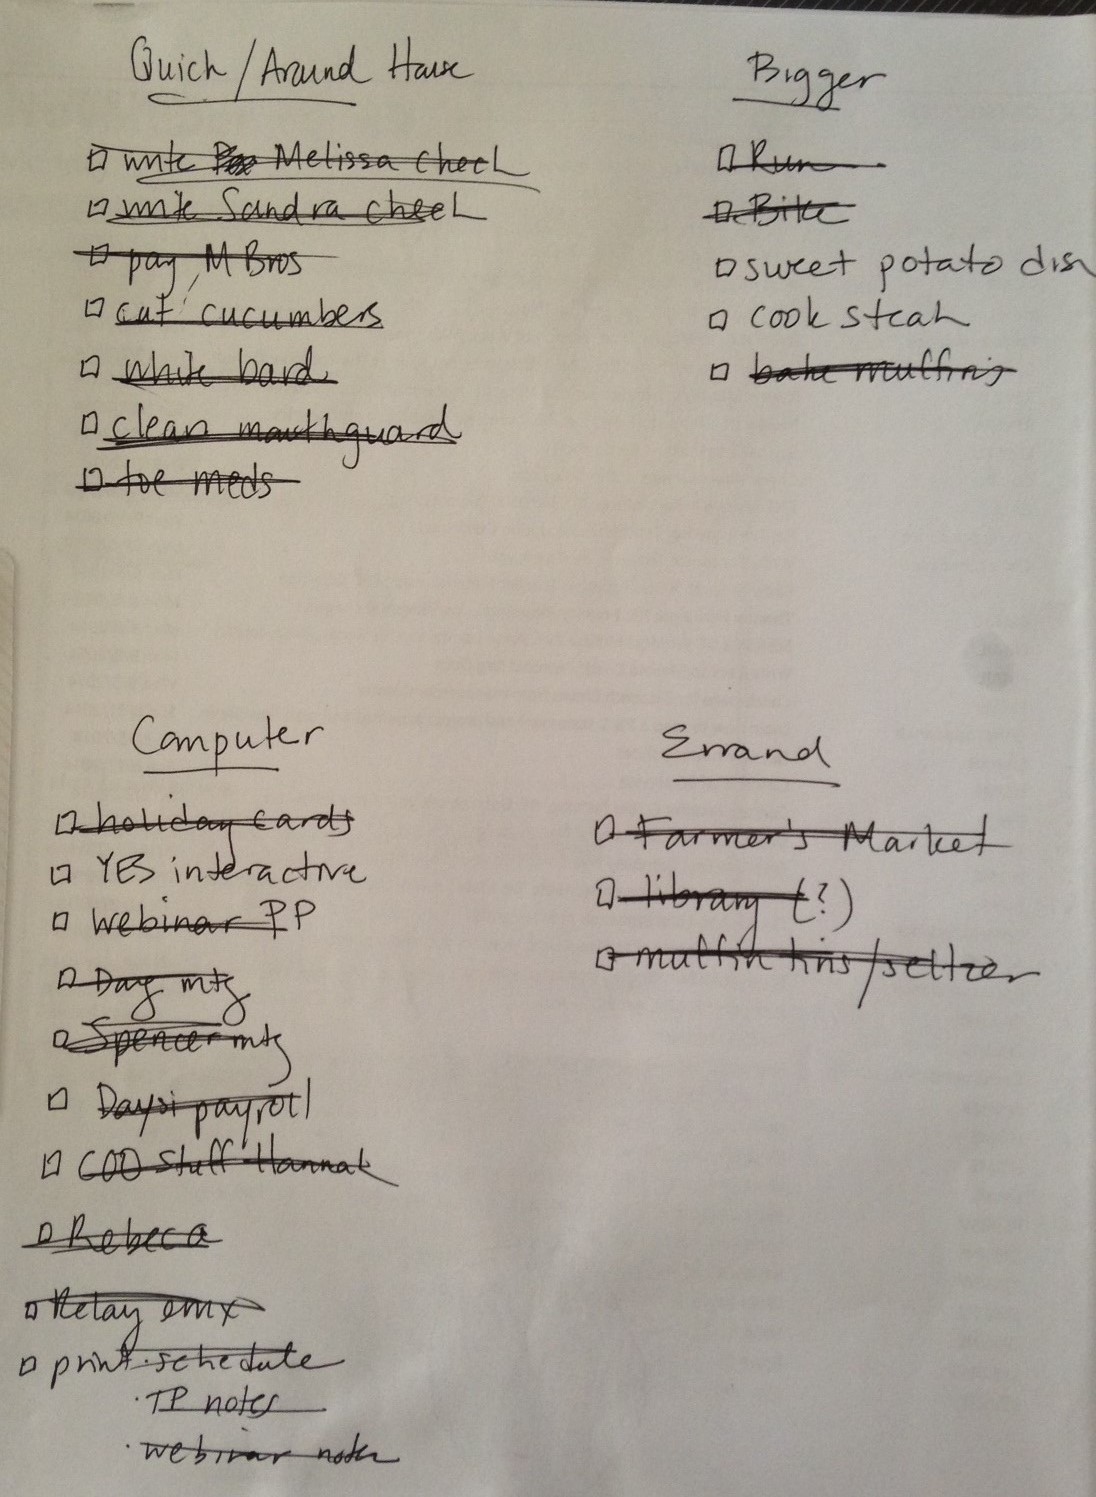 Quick/Around House
write Melissa check
write Sandra check
pay M Bros
cut cucumbers
white bard
clean mouthguard
toe meds
Bigger
Run
Bike
sweet potato dish
cook steak
bake muffins
Computer
holiday cards
YES interactive
webinar PP
Day mtg
Spencer mtg
Daysi payroll
COO Stuff Hannah
Rebeca
Relay
print schedule
· TP notes
· webinar notes
Errand
Farmer's Market
library (?)
muffin tins/seltzer